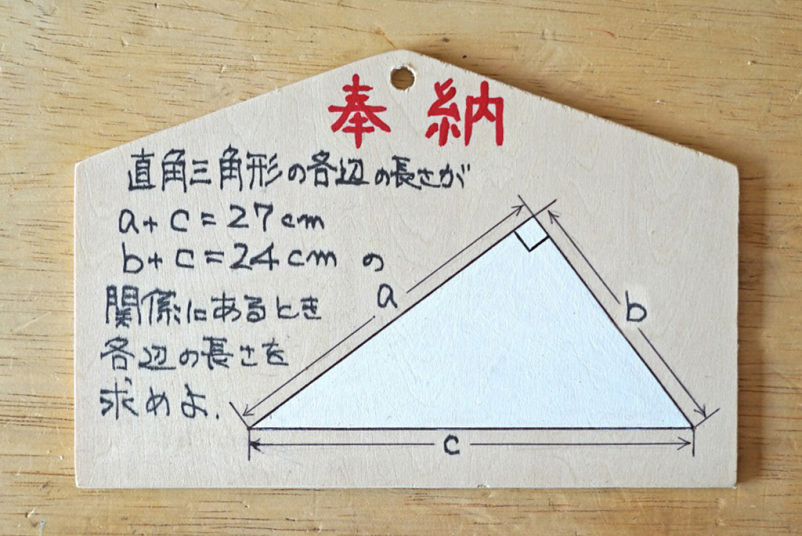 奉納
直角三角形の各辺の長さが
a+c=27cm
b+c=24cm の
関係にあるとき
各辺の長さを
求めよ.
a
b
c